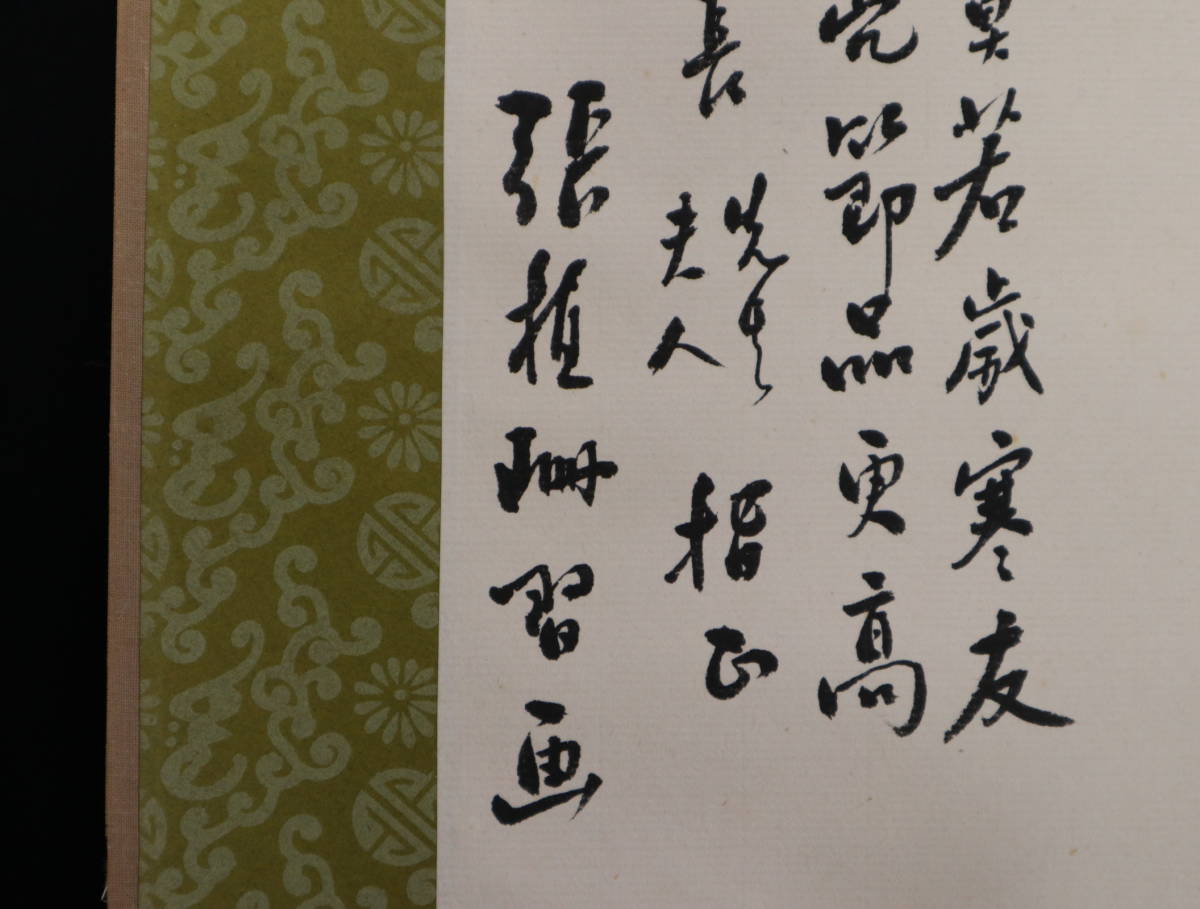 莫若歲寒友
竹節品更高
長 先生 夫人 指正
張植珊習画